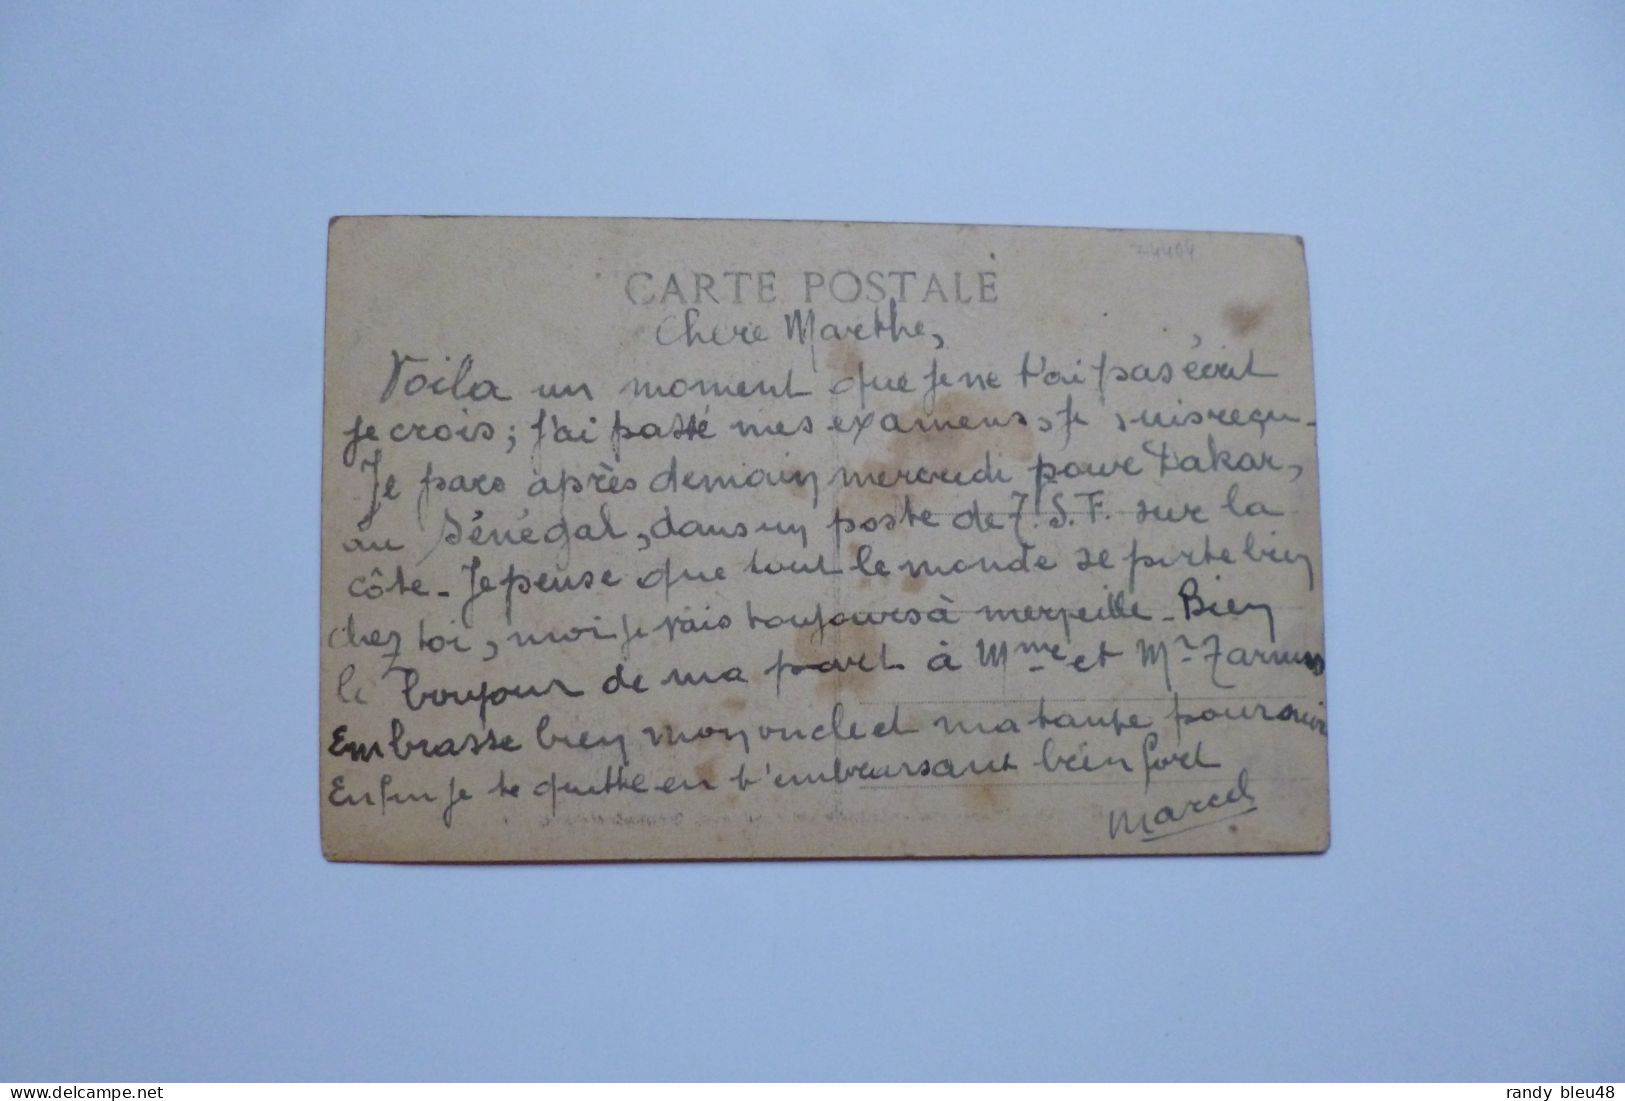 CARTE POSTALE
Chere Marthe,
Voila un moment que je ne t'ai pas écrit
je crois; j'ai passé mes examens, je suis reçu.
Je pars après demain mercredi pour Dakar,
au Sénégal, dans un poste de T.S.F. sur la
côte. Je pense que tout le monde se porte bien
chez toi, moi je vais toujours à merveille. Bien
le bonjour de ma part à Mme et Mr
Embrasse bien mon oncle et ma tante pour moi
Enfin je te quitte en t'embrassant bien fort
Marcel
www.delcampe.net
randy_bleu48